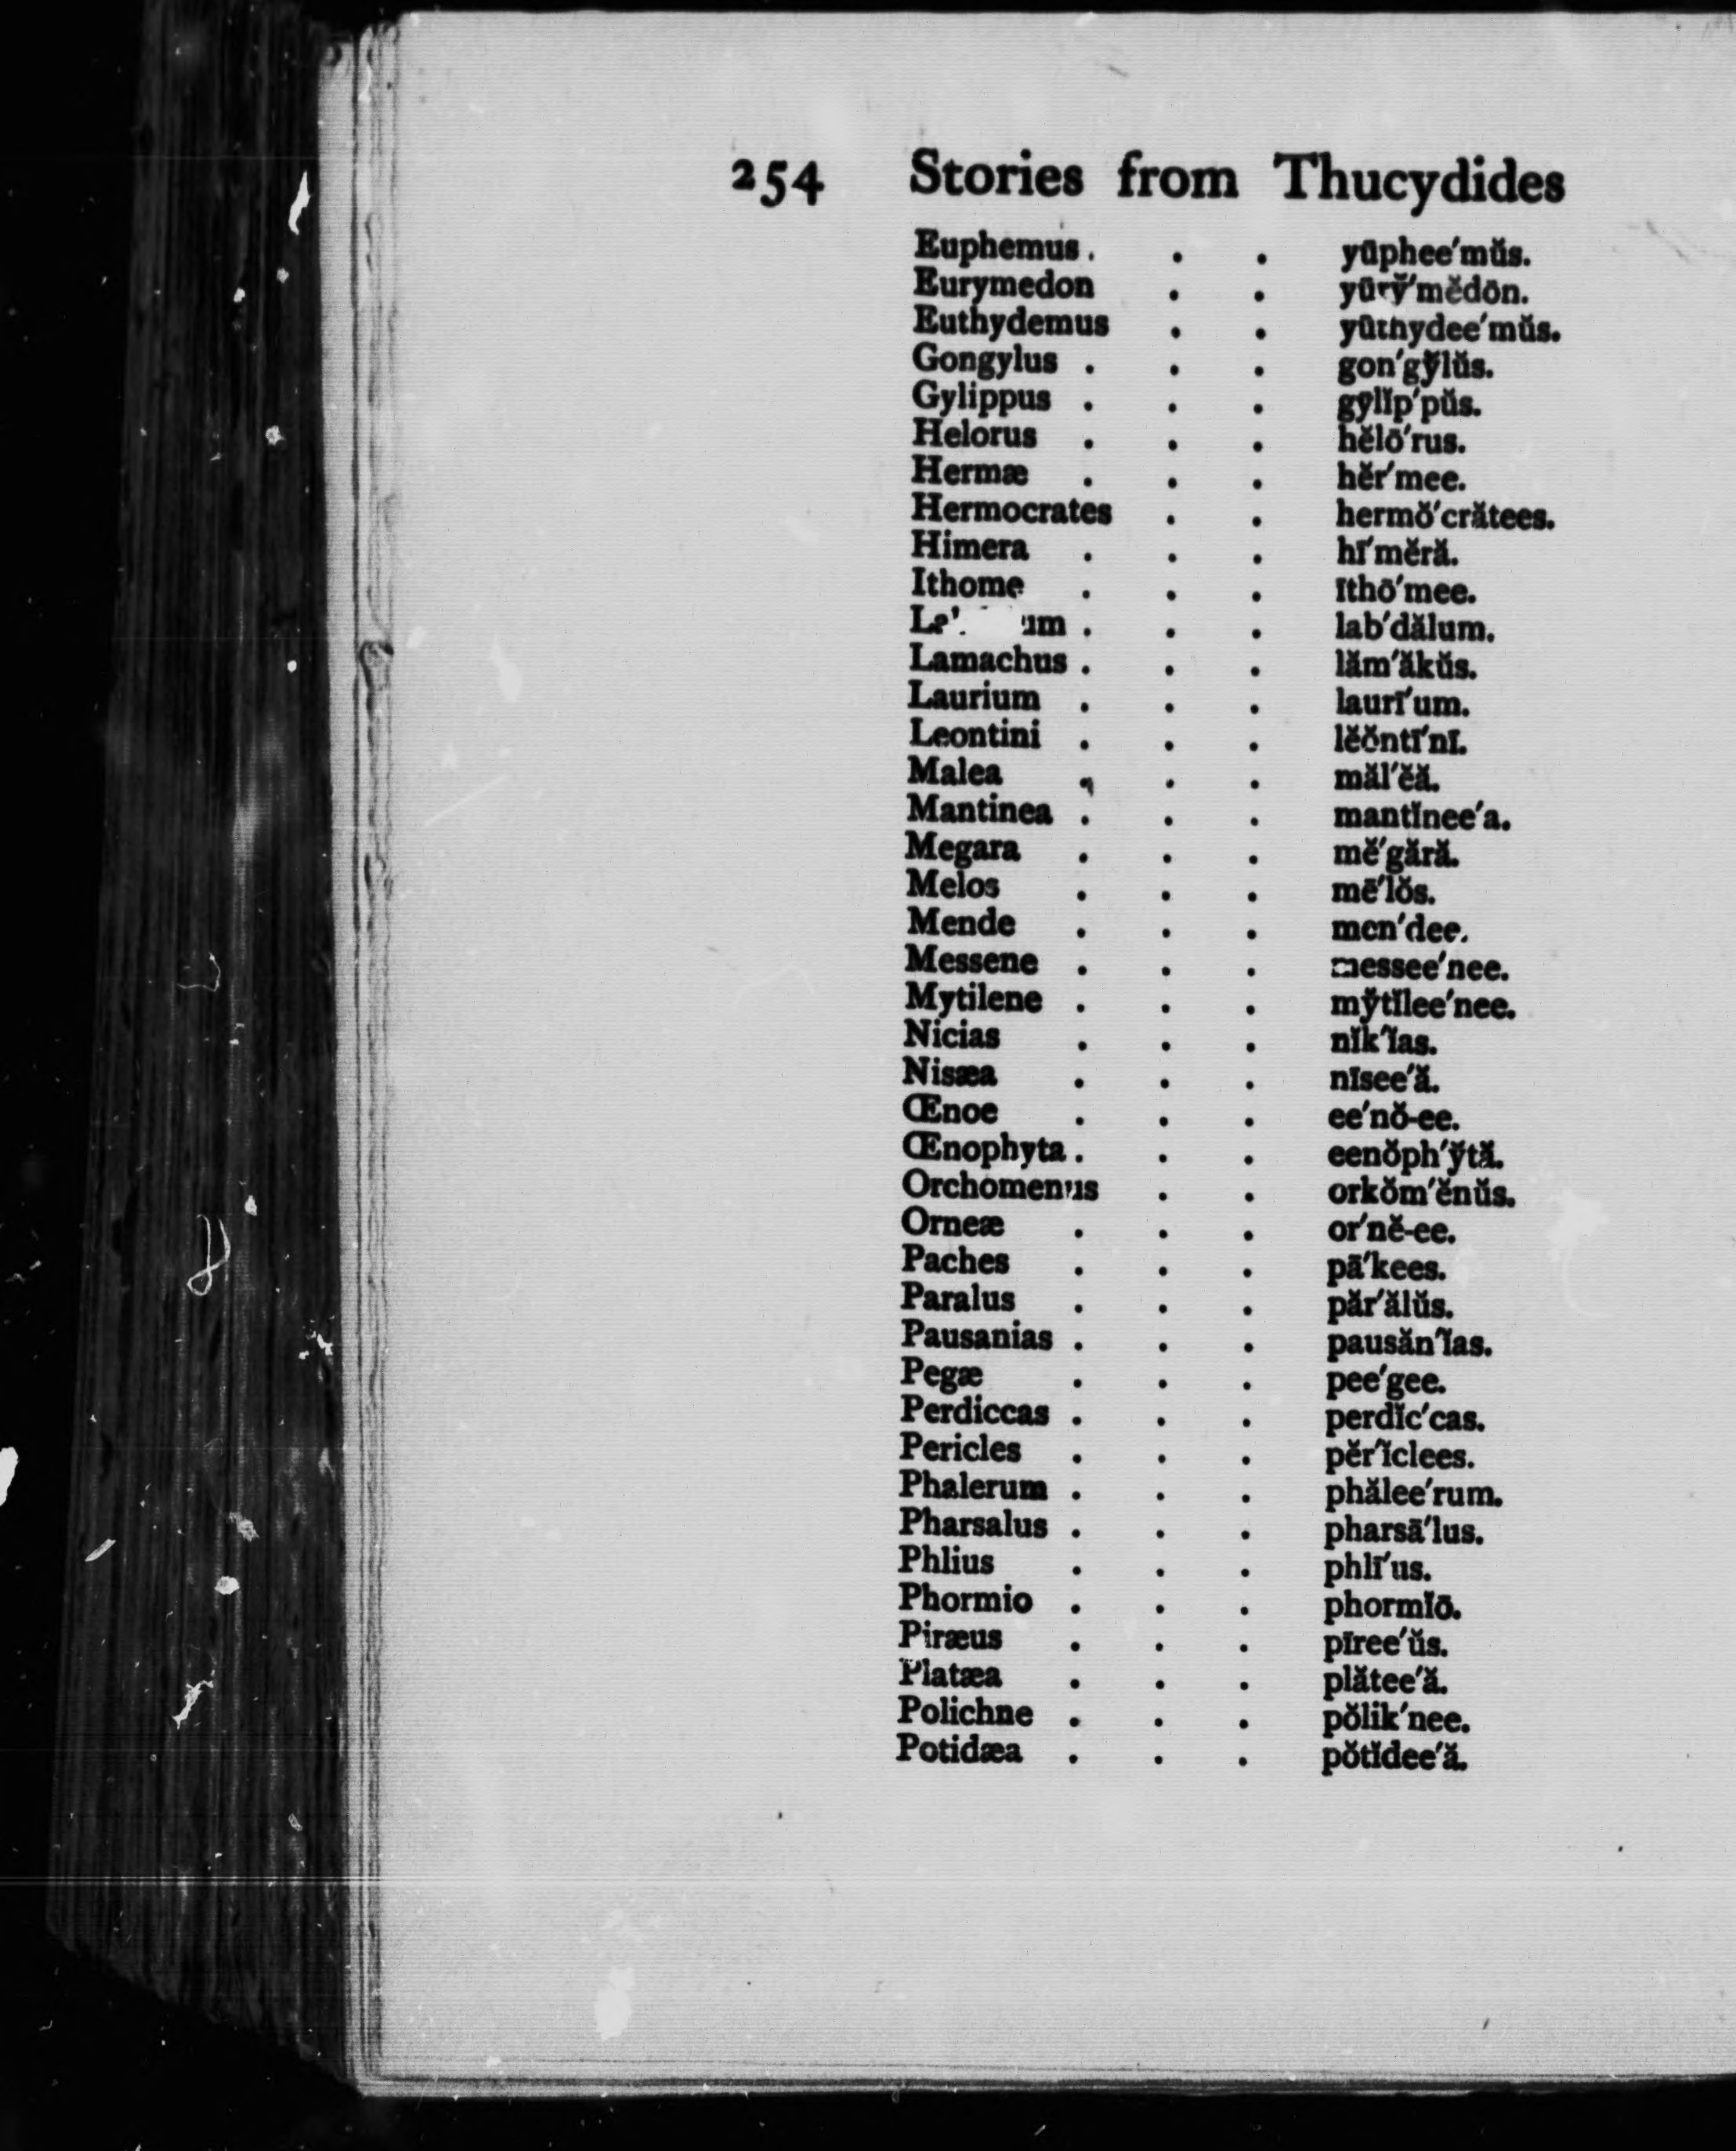 254 Stories from Thucydides
Euphemus . . . yūphee′mŭs.
Eurymedon . . yūry̆′mĕdōn.
Euthydemus . . yūthydee′mŭs.
Gongylus . . . gon′gy̆lŭs.
Gylippus . . . gȳlĭp′pŭs.
Helorus . . . hĕlō′rus.
Hermæ . . . hĕr′mee.
Hermocrates . . hermŏ′crătees.
Himera . . . hī′mĕră.
Ithome . . . īthō′mee.
. . . lab′dălum.
Lamachus . . . lăm′ăkŭs.
Laurium . . . laurī′um.
Leontini . . . lĕŏntī′nī.
Malea . . . măl′ĕă.
Mantinea . . . mantĭnee′a.
Megara . . . mĕ′gără.
Melos . . . mē′lŏs.
Mende . . . men′dee.
Messene . . . messee′nee.
Mytilene . . . my̆tĭlee′nee.
Nicias . . . nĭk′ĭas.
Nisæa . . . nīsee′ă.
Œnoe . . . ee′nŏ-ee.
Œnophyta . . . eenŏph′y̆tă.
Orchomenus . . orkŏm′ĕnŭs.
Orneæ . . . or′nĕ-ee.
Paches . . . pā′kees.
Paralus . . . păr′ălŭs.
Pausanias . . . pausăn′ĭas.
Pegæ . . . pee′gee.
Perdiccas . . . perdĭc′cas.
Pericles . . . pĕr′ĭclees.
Phalerum . . . phălee′rum.
Pharsalus . . . pharsā′lus.
Phlius . . . phlī′us.
Phormio . . . phormĭō.
Piræus . . . pīree′ŭs.
Platæa . . . plătee′ă.
Polichne . . . pŏlik′nee.
Potidæa . . . pŏtĭdee′ă.